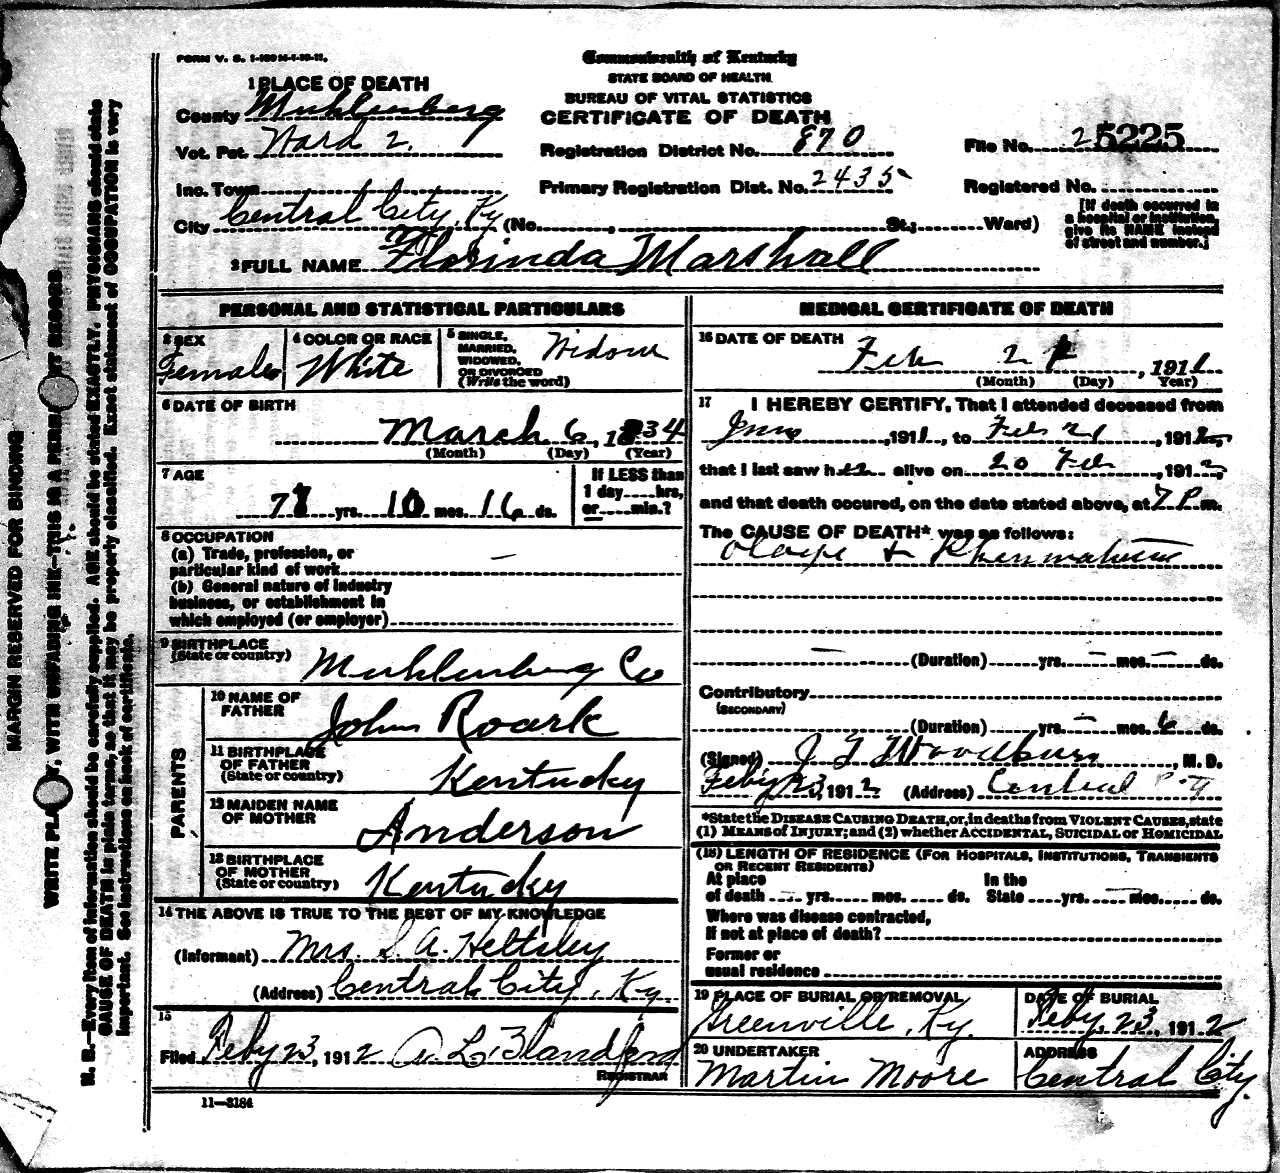 FORM V. S. 1-
Commonwealth of Kentucky
STATE BOARD OF HEALTH.
BUREAU OF VITAL STATISTICS
CERTIFICATE OF DEATH
1 PLACE OF DEATH
County Muhlenberg
Vot. Pct. Ward 2.
Registration District No. 870
File No. 25225
Inc. Town
Primary Registration Dist. No. 2435
Registered No.
City Central City, Ky (No. , St.; Ward)
[If death occurred in
a hospital or institution,
give its NAME instead
of street and number.]
2 FULL NAME Florinda Marshall
PERSONAL AND STATISTICAL PARTICULARS
3 SEX
Female
4 COLOR OR RACE
White
5 SINGLE,
MARRIED,
WIDOWED,
OR DIVORCED
(Write the word)
Widow
6 DATE OF BIRTH
March 6, 1834
(Month) (Day) (Year)
7 AGE
77 yrs. 10 mos. 16 ds.
If LESS than
1 day hrs,
or min.?
8 OCCUPATION
(a) Trade, profession, or
particular kind of work —
(b) General nature of industry
business, or establishment in
which employed (or employer)
9 BIRTHPLACE
(State or country)
Muhlenberg Co
PARENTS
10 NAME OF
FATHER
John Roark
11 BIRTHPLACE
OF FATHER
(State or country)
Kentucky
12 MAIDEN NAME
OF MOTHER
Anderson
13 BIRTHPLACE
OF MOTHER
(State or country)
Kentucky
14 THE ABOVE IS TRUE TO THE BEST OF MY KNOWLEDGE
(Informant) Mrs. S. A. Heltsley
(Address) Central City, Ky
15
Filed Feby 23, 1912 A. L. Blandford
REGISTRAR
11—3184
MEDICAL CERTIFICATE OF DEATH
16 DATE OF DEATH
Feb 21, 1911
(Month) (Day) Year)
17 I HEREBY CERTIFY, That I attended deceased from
, 1911, to Feb 21, 1912,
that I last saw her alive on 20 Feb, 1912,
and that death occured, on the date stated above, at 7 P. m.
The CAUSE OF DEATH* was as follows:
& Rheumatism
— (Duration) yrs. — mos. — ds.
Contributory
(SECONDARY)
(Duration) yrs. — mos. 6 ds.
(Signed) J T Woodburn, M. D.
Feby 23, 1912 (Address) Central City
*State the DISEASE CAUSING DEATH, or, in deaths from VIOLENT CAUSES, state
(1) MEANS of INJURY; and (2) whether ACCIDENTAL, SUICIDAL or HOMICIDAL
(18) LENGTH OF RESIDENCE (FOR HOSPITALS, INSTITUTIONS, TRANSIENTS
OR RECENT RESIDENTS)
At place
of death — yrs. mos. ds.
In the
State yrs. — mos. — ds.
Where was disease contracted,
If not at place of death?
Former or
usual residence
19 PLACE OF BURIAL OR REMOVAL
Greenville, Ky.
DATE OF BURIAL
Feby. 23, 1912
20 UNDERTAKER
Martin Moore
ADDRESS
Central City.
MARGIN RESERVED FOR BINDING
WITH UNFADING INK—THIS IS A
N. B.—Every item of information should be carefully supplied. AGE should be stated EXACTLY. PHYSICIANS should state
CAUSE OF DEATH in plain terms, so that it may be properly classified. Exact statement of OCCUPATION is very
important. See instructions on back of certificate.